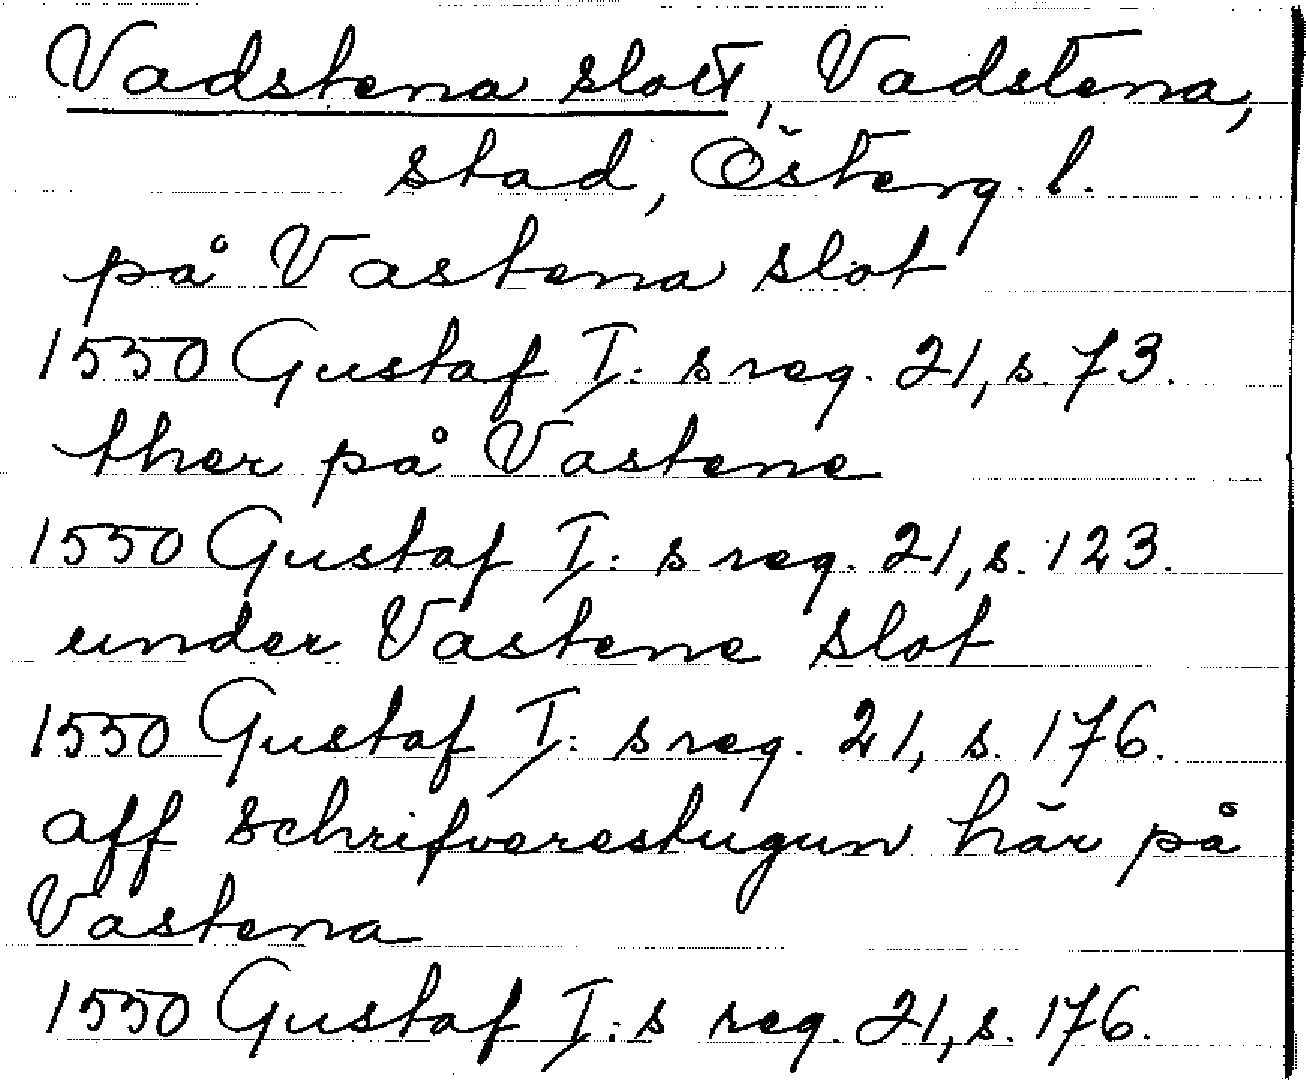 Vadstena slott, Vadstena,
stad, Österg. l.
på Vastena slot
1550 Gustaf I: s reg. 21, s. 73.
ther på Vastene
1550 Gustaf I: s reg. 21, s. 123.
under Vastene slot
1550 Gustaf I: s reg. 21, s. 176.
aff schrifverestugun här på
Vastena
1550 Gustaf I: s reg. 21, s. 176.